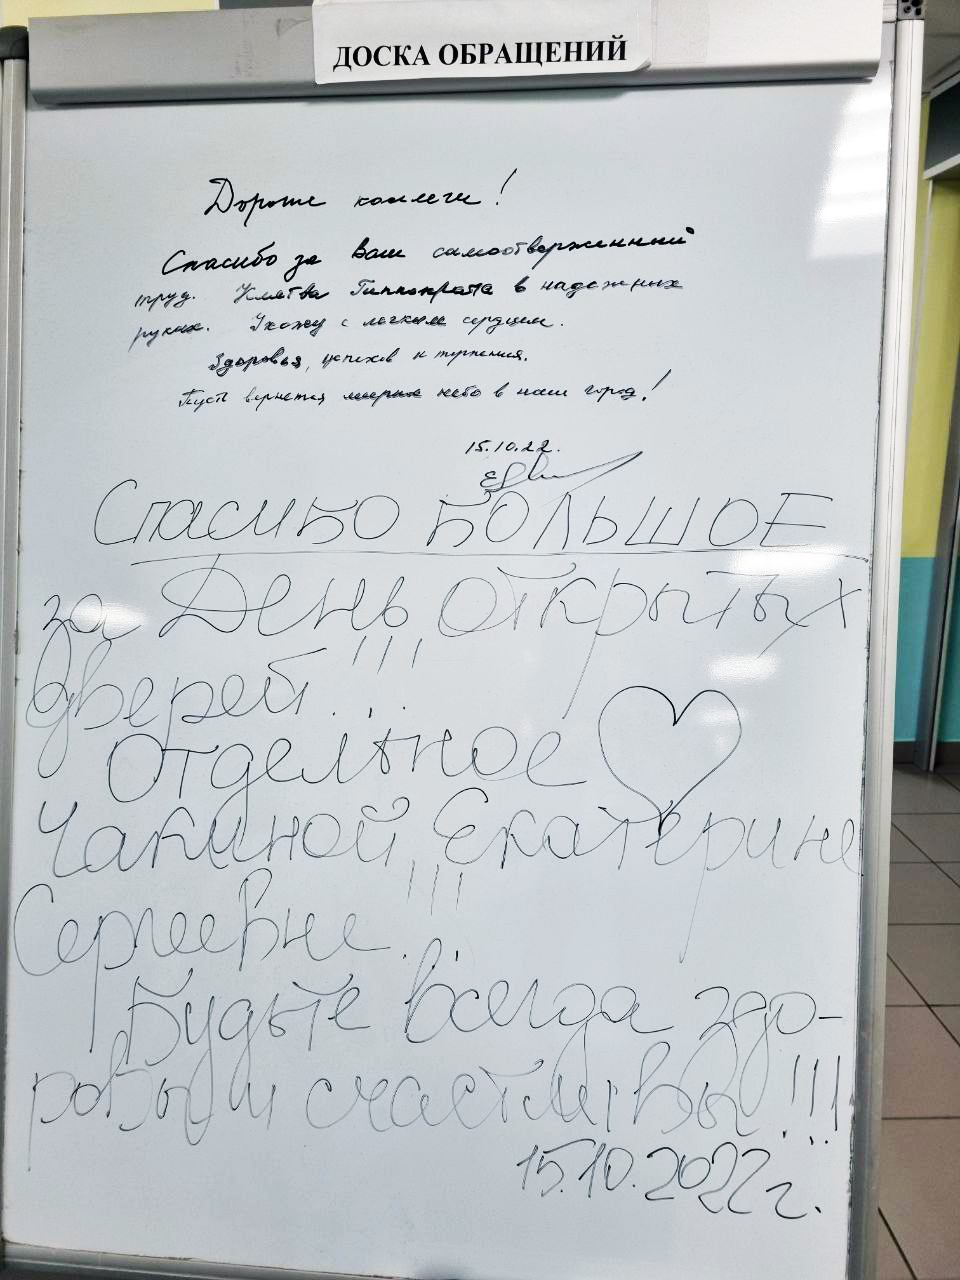 ДОСКА ОБРАЩЕНИЙ
Дорогие коллеги!
Спасибо за Ваш самоотверженный
труд. Клятва Гиппократа в надежных
руках. Ухожу с легким сердцем.
Здоровья, успехов и терпения.
Пусть вернется мирное небо в наш город!
15.10.22.
Спасибо БОЛЬШОЕ
за День открытых
дверей!!!
Отдельное
Чакиной Екатерине
Сергеевне!!!
Будьте всегда здо-
ровы и счастливы!!!
15.10.2022г.